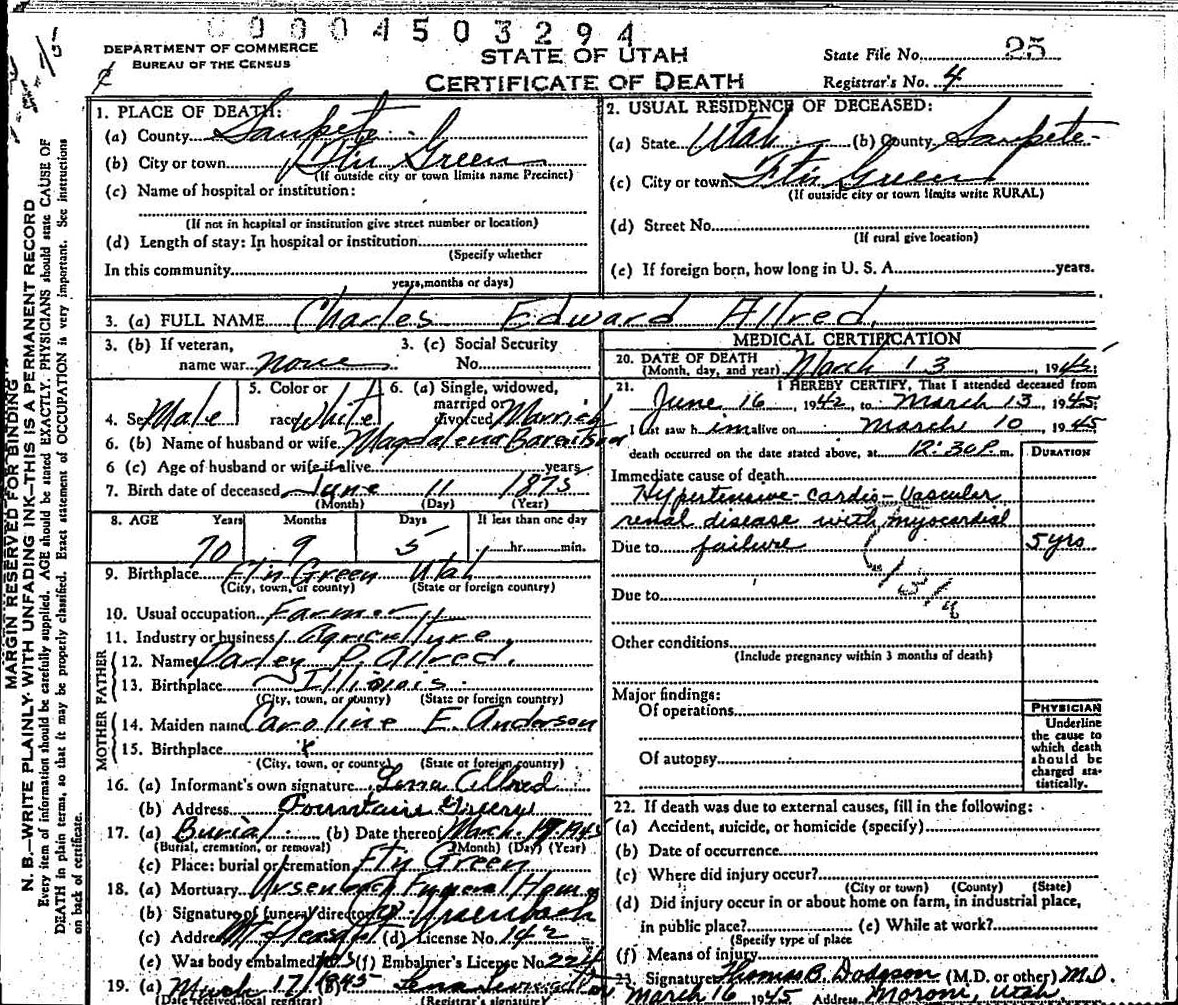 0004503294
DEPARTMENT OF COMMERCE
BUREAU OF THE CENSUS
STATE OF UTAH
CERTIFICATE OF DEATH
State File No. 25
Registrar's No. 4
MARGIN RESERVED FOR BINDING
N. B.—WRITE PLAINLY WITH UNFADING INK—THIS IS A PERMANENT RECORD
Every item of information should be carefully supplied. AGE should be stated EXACTLY. PHYSICIANS should state CAUSE OF
DEATH in plain terms, so that it may be properly classified. Exact statement of OCCUPATION is very important. See instructions
on back of certificate.
1. PLACE OF DEATH:
(a) County Sanpete
(b) City or town Ftn Green
(If outside city or town limits name Precinct)
(c) Name of hospital or institution:
(If not in hospital or institution give street number or location)
(d) Length of stay: In hospital or institution
(Specify whether
In this community
years, months or days)
2. USUAL RESIDENCE OF DECEASED:
(a) State Utah (b) County Sanpete
(c) City or town Ftn Green
(If outside city or town limits write RURAL)
(d) Street No.
(If rural give location)
(e) If foreign born, how long in U. S. A. years.
3. (a) FULL NAME Charles Edward Allred
3. (b) If veteran,
name war none
3. (c) Social Security
No.
4. Sex Male
5. Color or
race White
6. (a) Single, widowed,
married or
divorced Married
6. (b) Name of husband or wife Magdalena
6 (c) Age of husband or wife if alive years
7. Birth date of deceased June 11 1875
(Month) (Day) (Year)
8. AGE Years Months Days If less than one day
70 9 5 hr. min.
9. Birthplace Ftn Green Utah
(City, town, or county) (State or foreign country)
10. Usual occupation Farmer
11. Industry or business Agriculture
FATHER
12. Name Parley P. Allred.
13. Birthplace Illinois.
(City, town, or county) (State or foreign country)
MOTHER
14. Maiden name Caroline E. Anderson
15. Birthplace x
(City, town, or county) (State or foreign country)
16. (a) Informant's own signature Lena Allred
(b) Address Fountain Green
17. (a) Burial (b) Date thereof March 1945
(Burial, cremation, or removal) (Month) (Day) (Year)
(c) Place: burial or cremation Ftn Green
18. (a) Mortuary Ursenbach Funeral Home
(b) Signature of funeral director Ursenbach
(c) Address Mt Pleasant (d) License No. 142
(e) Was body embalmed? yes (f) Embalmer's License No. 224
19. (a) March 17 1945 (b) Lena
(Date received local registrar) (Registrar's signature)
MEDICAL CERTIFICATION
20. DATE OF DEATH
(Month, day, and year) March 13, 1945
21. I HEREBY CERTIFY, That I attended deceased from
June 16, 1942, to March 13, 1945;
I last saw him alive on March 10, 1945
death occurred on the date stated above, at 12:30 P. m.
DURATION
Immediate cause of death
Hypertensive-Cardio-Vascular
renal disease with myocardial
Due to failure 5 yrs
Due to
Other conditions
(Include pregnancy within 3 months of death)
Major findings:
Of operations
Of autopsy
PHYSICIAN
Underline
the cause to
which death
should be
charged sta-
tistically.
22. If death was due to external causes, fill in the following:
(a) Accident, suicide, or homicide (specify)
(b) Date of occurrence
(c) Where did injury occur?
(City or town) (County) (State)
(d) Did injury occur in or about home on farm, in industrial place,
in public place? (e) While at work?
(Specify type of place
(f) Means of injury
23. Signature Thomas B. Dodgson (M.D. or other) M.D.
March 16 1945 Address Moroni, Utah